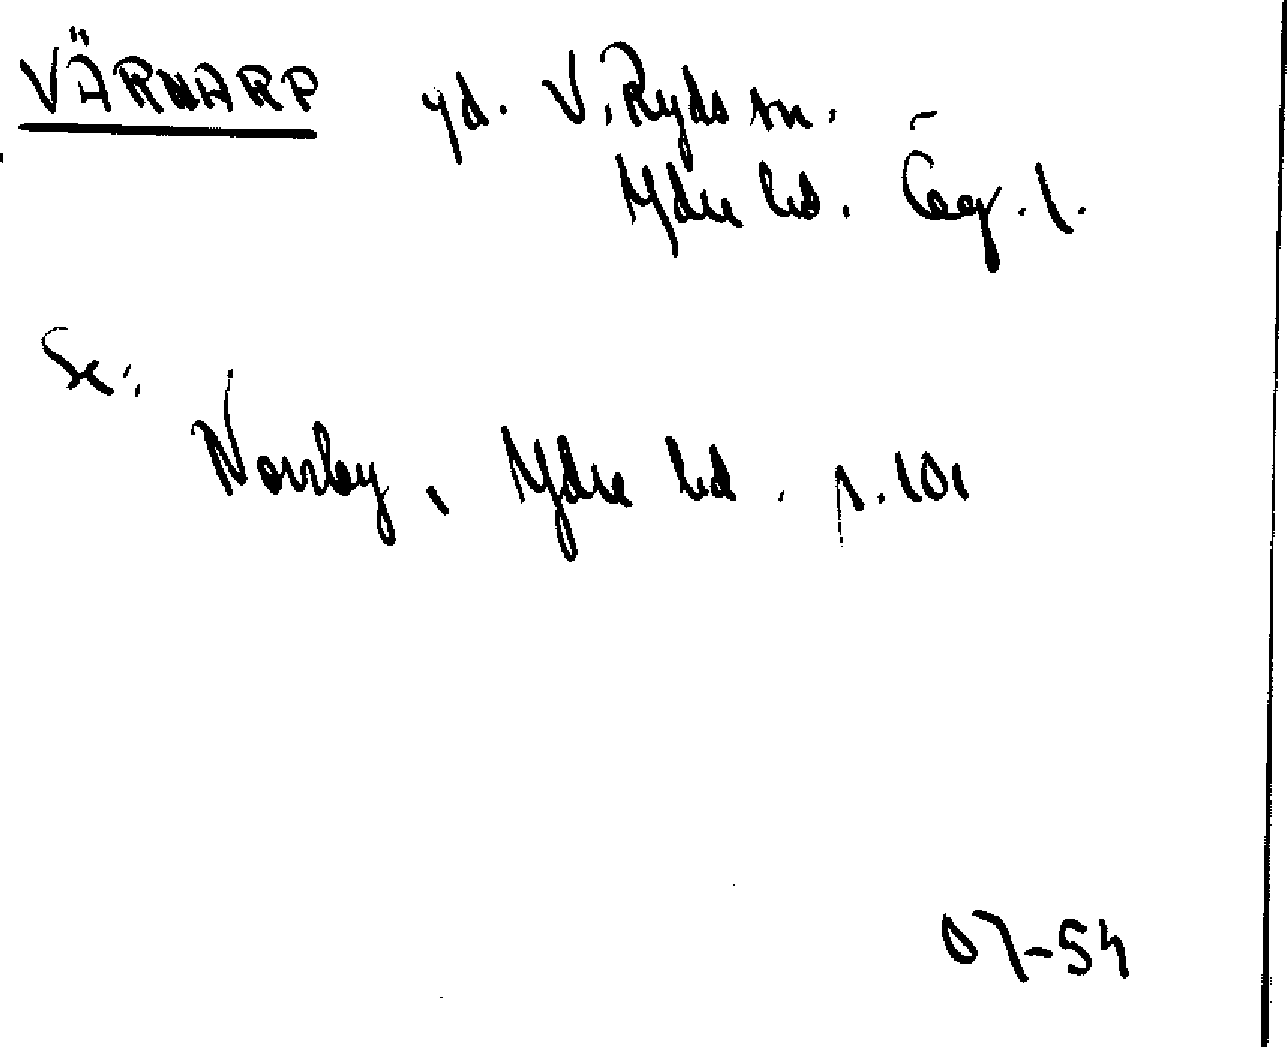 VÄRNARP gd. V. Ryds sn.
Ydre hd. Ög. l.
Se:
Norrby, Ydre hd. s. 101
07-54